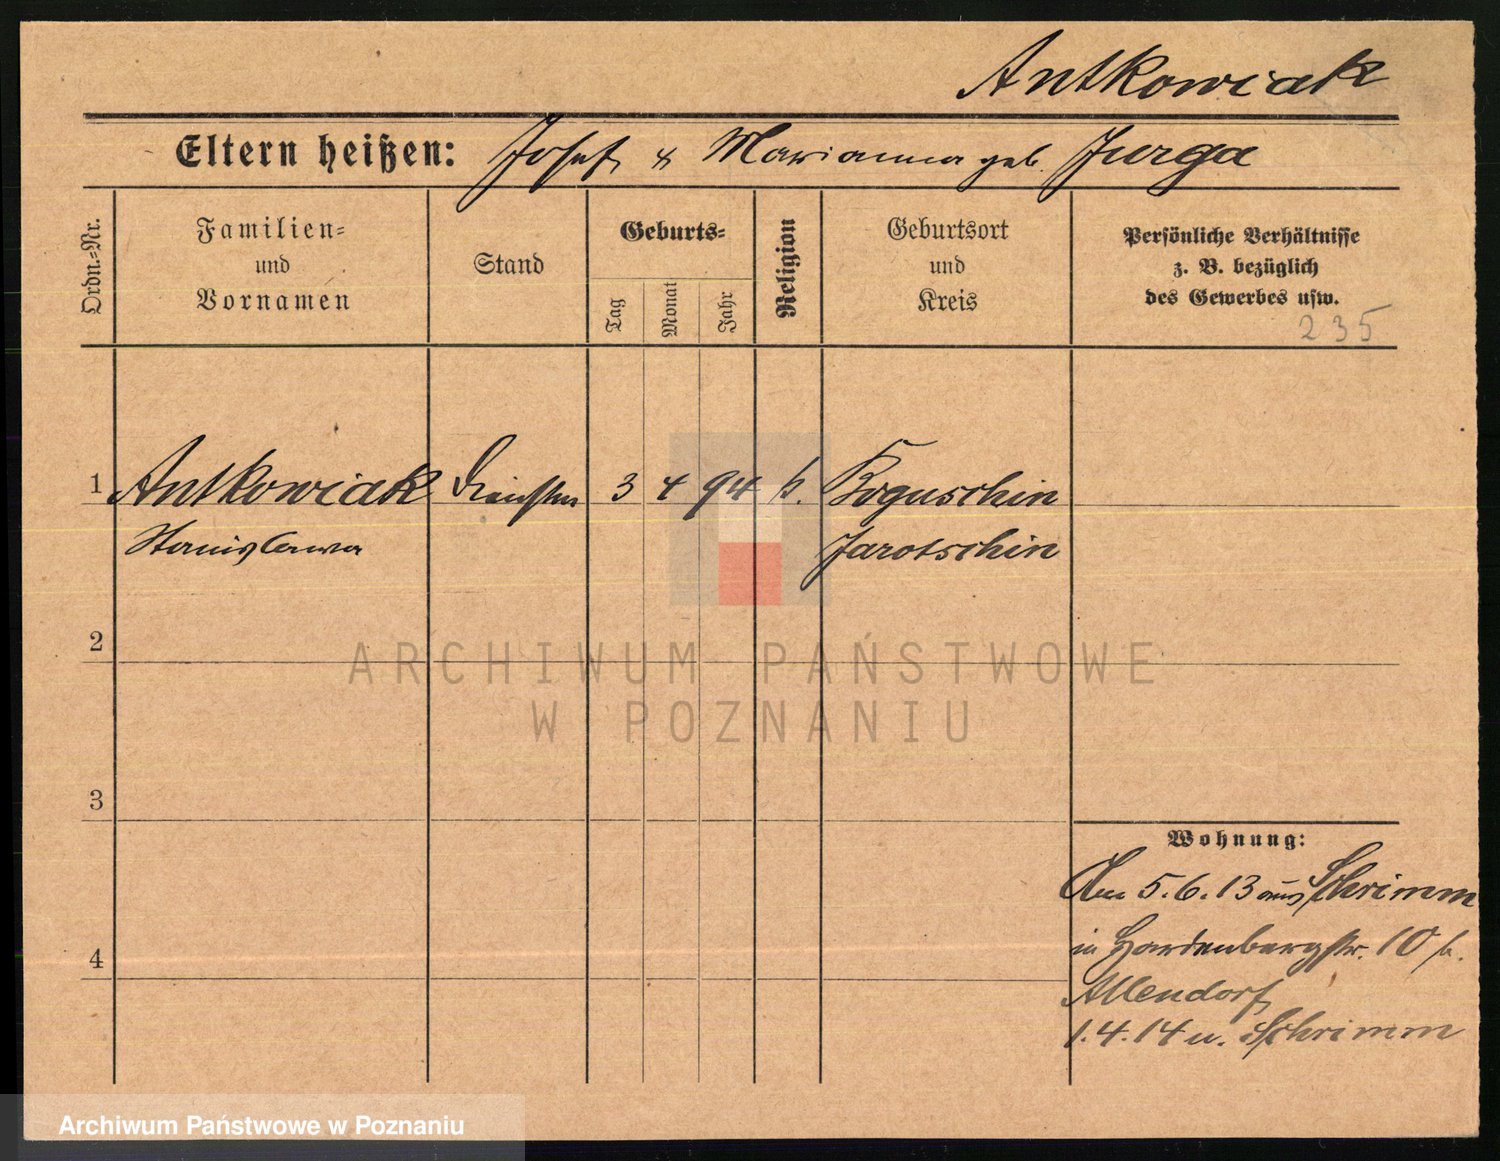 Antkowiak
Eltern heißen: Josef & Marianna geb. Jurga
Ordn.-Nr.
Familien-
und
Vornamen
Stand
Geburts-
Tag
Monat
Jahr
Religion
Geburtsort
und
Kreis
Persönliche Verhältnisse
z. B. bezüglich
des Gewerbes usw.
235
1 Antkowiak 3 4 94 k. Boguschin
Stanislawa Jarotschin
2
3
4
Wohnung:
Am 5.6.13 aus Schrimm
in Hardenbergstr. 10 b.
Allendorf
1.4.14 n. Schrimm
ARCHIWUM PAŃSTWOWE
W POZNANIU
Archiwum Państwowe w Poznaniu